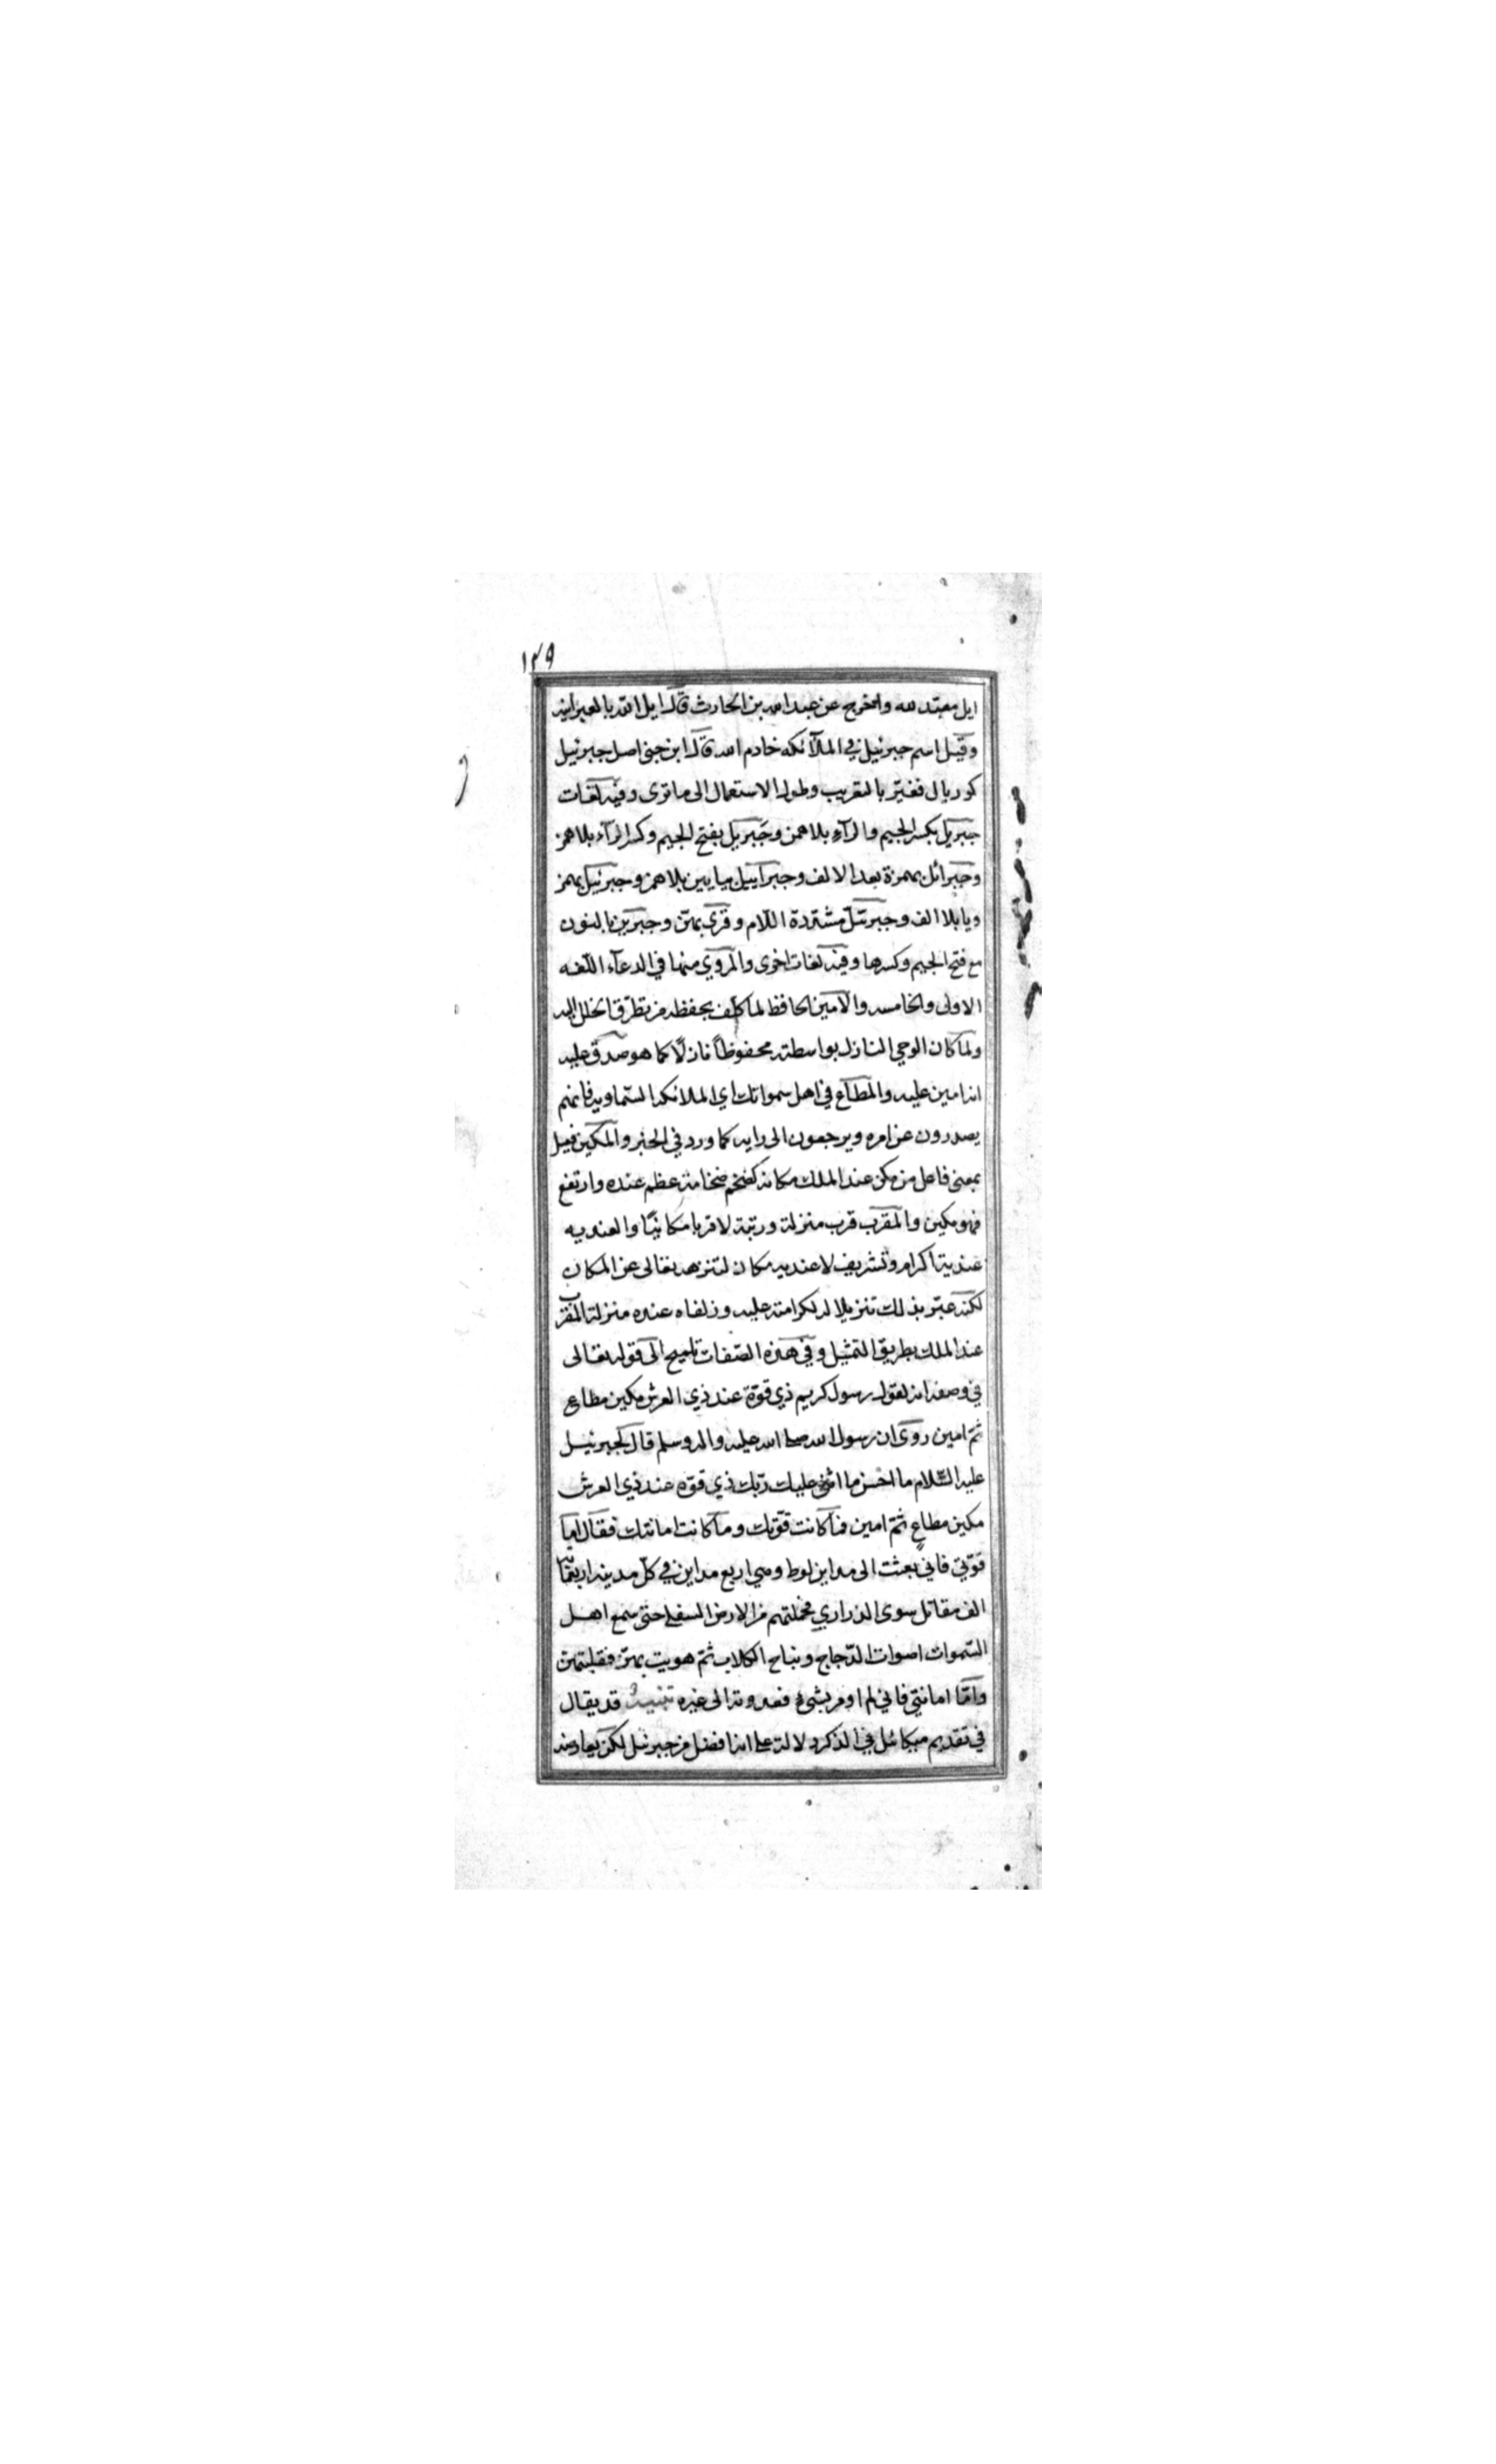 ١٢٩
ايل معبّد لله واخرج عن عبدالله بن الحارث قال ايل الله بالعبرانيه
وقيل اسم جبرئيل في الملآئكه خادم الله قال ابن جنى اصل جبرئيل
كوريال فغيّر بالتعريب وطول الاستعمال الى ما ترى وفيه لغات
جبريل بكسر الجيم والرآء بلا همز وجَبريل بفتح الجيم وكسر الرآء بلا همز
وجبرائل بهمزة بعد الالف وجبراييل بيايين بلا همز وجبرئيل بهمز
ويا بلا الف وجبرئلّ مشدّدة اللام وقرئ بهنّ وجبرين بالنون
مع فتح الجيم وكسرها وفيه لغات اخرى والمروي منها في الدعآء اللغه
الاولى والخامسه والامين الحافظ لما كلف بحفظه من تطرّق الخلل اليه
ولما كان الوحي النازل بواسطته محفوظاً نازلاً كما هو صدق عليه
انه امين عليه والمطاع في اهل سمواتك اي الملائكه السّماويه فانهم
يصدرون عن امره ويرجعون الى رايه كما ورد في الخبر والمكين فعيل
بمعنى فاعل من مكن عند الملك مكانه كضخم ضخامة عظم عنده وارتفع
فهو مكين والمقرب قرب منزلة ورتبة لا قربا مكانيّا والعنديه
عندية اكرام وتشريف لا عنديه مكان لتنزهه تعالى عن المكان
لكنه عبّر بذلك تنزيلا له لكرامته عليه وزلفاه عنده منزلة المقرب
عند الملك بطريق التمثيل وفي هذه الصّفات تلميح الى قوله تعالى
في وصفه انه لقول رسول كريم ذي قوّة عند ذي العرش مكين مطاع
ثمّ امين روى ان رسول الله صلى الله عليه واله وسلم قال لجبرئيل
عليه السّلام ما احسن ما اثنى عليك ربّك ذي قوّه عند ذي العرش
مكين مطاعٍ ثمّ امين فما كانت قوّتك وما كانت امانتك فقال اما
قوّتي فاني بعثت الى مداين لوط وهي اربع مداين في كلّ مدينه اربعمائة
الف مقاتل سوى الذراري فحملتهم من الارض السفلى حتى سمع اهل
السّموات اصوات الدّجاج ونباح الكلاب ثمّ هويت بهنّ فقلبتهنّ
وامّا امانتي فاني لم اومر بشيء فعدوته الى غيره تنبيه قد يقال
في تقديم ميكائل في الذكر دلالة على انه افضل من جبرئيل لكن يعارضه